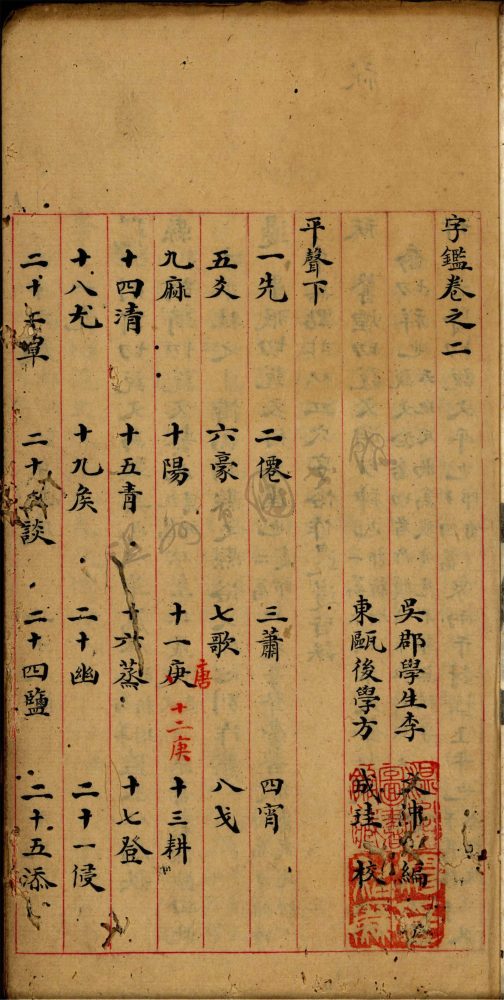 字鑑卷之二
吳郡學生李文仲編
東甌後學方成珪校
平聲下
一先 二僊 三蕭 四宵
五爻 六豪 七歌 八戈
九麻 十陽 十一庚 唐 十二庚 十三耕
十四清 十五青 十六蒸 十七登
十八尤 十九矦 二十幽 二十一侵
二十二覃 二十三談 二十四鹽 二十五添